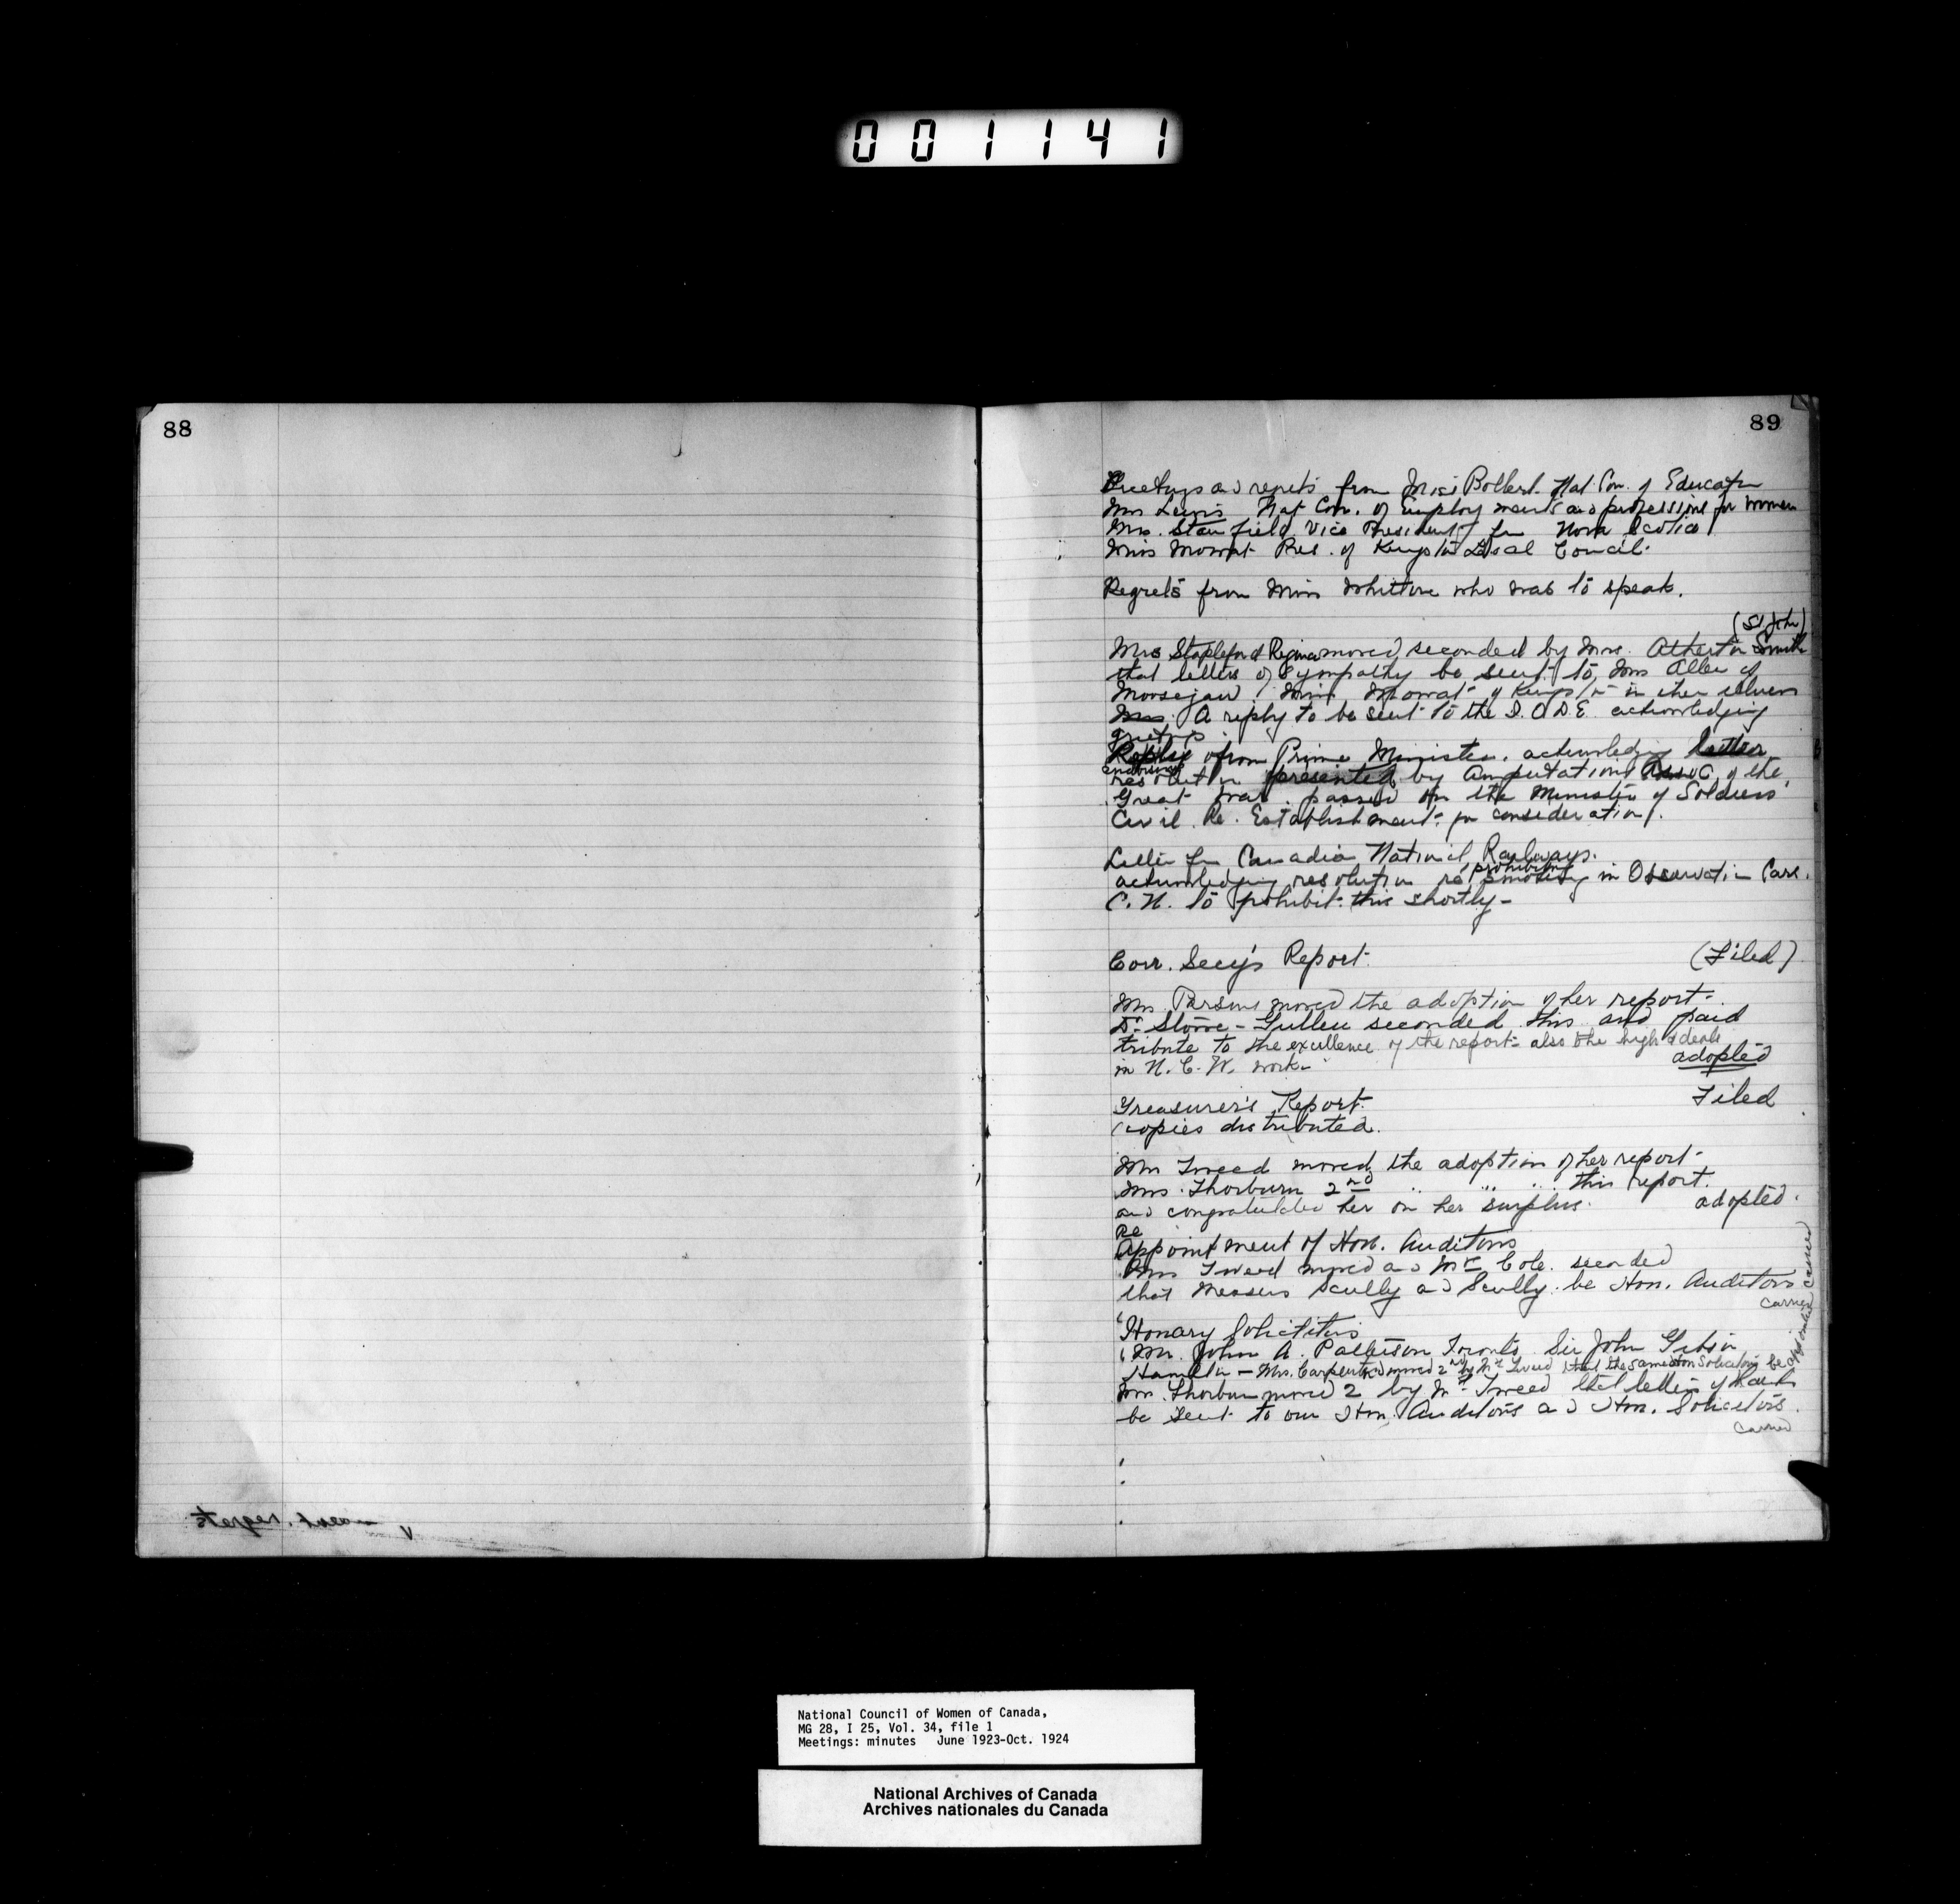 001141
88
89
Greetings and regrets from Miss Bollert. Nat. Con. of Education
Mrs Lewis Nat Con. of Employments and professions for Women
Mrs. Stanfield Vice President for Nova Scotia
Miss Mowat Pres. of Kingston Local Council.
Regrets from Miss Whitton who was to speak.
(St John)
Mrs Stapleford Regina moved, seconded by Mrs. Atherton Smith
that letters of Sympathy be sent to Mrs Allen of
Moosejaw, Miss Mowat of Kingston in their illness
Mrs. A reply to be sent to the I.O.D.E. acknowledging
greetings.
Reply from Prime Minister. acknowledging letter
endorsing
resolution presented by Amputations Assoc. of the
Great War. passed on the Minister of Soldiers'
Civil Re. Establishment for consideration.
Letter fr Canadian National Railways.
prohibiting
acknowledging resolution re smoking in Observation Cars.
C. N. to prohibit this shortly -
Corr. Secy's Report. (Filed)
Mrs. Parsons moved the adoption of her report -
Dr Stowe-Gullen seconded this and paid
tribute to the excellence of the report - also the high ideals
in N. C. W. work - adopted
Treasurer's Report. Filed
copies distributed.
Mrs Tweed moved the adoption of her report -
Mrs. Thorburn 2nd .. ... .. this report.
and congratulated her on her surplus. adopted.
Re
Appointment of Hon. Auditors
Mrs Tweed moved and Mrs Cole. seconded
that Messrs Scully and Scully be Hon. Auditors
carried
Honary Solicitors
Mr. John A. Patterson Toronto. Sir John Gibson
Hamilton - Mrs. Carpenter moved 2nd by Mrs Tweed that the same Hon Solicitors be
appointed carried
Mrs. Thorburn moved 2 by Mrs Tweed that letters of thanks
be sent to our Hon. Auditors and Hon. Solicitors.
carried
National Council of Women of Canada,
MG 28, I 25, Vol. 34, file 1
Meetings: minutes June 1923-Oct. 1924
National Archives of Canada
Archives nationales du Canada